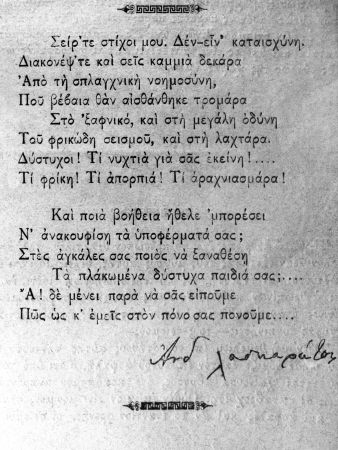 Σείρ'τε στίχοι μου. Δέν-εἶν' καταισχύνη.
Διακονέψ'τε καὶ σεῖς καμμιὰ δεκάρα
Ἀπὸ τὴ σπλαγχνικὴ νοημοσύνη,
Ποῦ βέβαια θἂν αἰσθάνθηκε τρομάρα
Στὸ ξαφνικό, καὶ στὴ μεγάλη ὀδύνη
Τοῦ φρικώδη σεισμοῦ, καὶ στὴ λαχτάρα.
Δύστυχοι! Τί νυχτιὰ γιὰ σᾶς ἐκείνη!....
Τί φρίκη! Τί ἀπορπιά! Τί ἀραχνιασμάρα!
Καὶ ποιὰ βοήθεια ἤθελε 'μπορέσει
Ν' ἀνακουφίση τὰ ὑποφέρματά σας;
Στὲς ἀγκάλες σας ποιὸς νὰ ξαναθέση
Τὰ πλάκωμένα δύστυχα παιδιά σας;....
Ἄ! δὲ μένει παρὰ νὰ σᾶς εἰποῦμε
Πῶς ὡς κ' ἐμεῖς στὸν πόνο σας πονοῦμε....
Ἀνδ Λασκαράτος